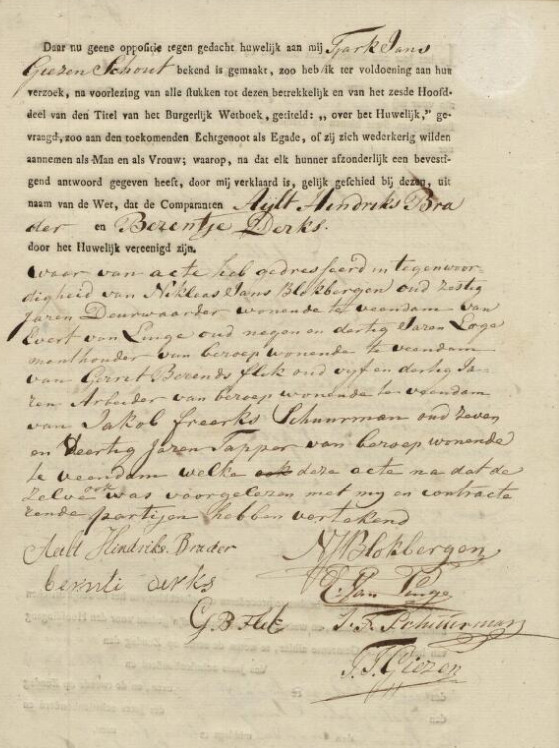 Daar nu geene oppositie tegen gedacht huwelijk aan mij Tjark Jans
Giezen Schout bekend is gemaakt, zoo heb ik ter voldoening aan hun
verzoek, na voorlezing van alle stukken tot dezen betrekkelijk en van het zesde Hoofd-
deel van den Titel van het Burgerlijk Wetboek, getiteld: „over het Huwelijk,” ge-
vraagd, zoo aan den toekomenden Echtgenoot als Egade, of zij zich wederkerig wilden
aannemen als Man en als Vrouw; waarop, na dat elk hunner afzonderlijk een bevesti-
gend antwoord gegeven heeft, door mij verklaard is, gelijk geschied bij dezen, uit
naam van de Wet, dat de Comparanten Aijlt Hindriks Bra
der en Berentje Derks.
door het Huwelijk vereenigd zijn.
waar van acte heb gedresseerd in tegenwoor-
digheid van Niklaas Jans Blokbergen oud zestig
jaren Deurwaarder wonende te veendam van
Evert van Linge oud negen en dertig Jaren Loge
menthouder van beroep wonende te veendam
van Gerret Berends flik oud vyf en dertig Ja-
ren Arbeider van beroep wonende te veendam
van Jakob freerks Schuurman oud zeven
en veertig jaren Tapper van beroep wonende
te veendam welke ook deze acte na dat de
zelve ook was voorgelezen met my en contracte
rende partijen hebben vertekend
Aeilt Hindriks. Brader NJBlokbergen
derks E. van Linge
G.B Flik J. F. Schuurman
T. J. Giezen